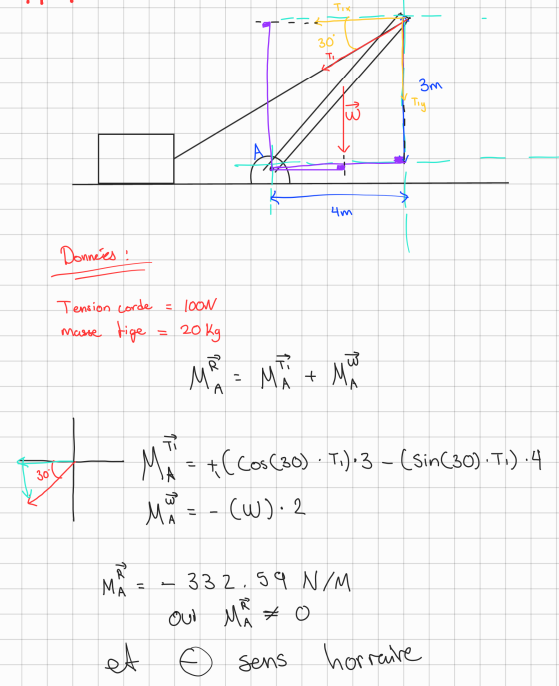 T₁ₓ
30°
T₁
3m
W⃗
T₁y
A
4m
Données :
Tension corde = 100N
masse tige = 20 Kg
M_A^R⃗ = M_A^T⃗₁ + M_A^W⃗
30°
M_A^T⃗₁ = +(cos(30) · T₁)·3 − (sin(30) · T₁) · 4
M_A^W⃗ = − (W) · 2
M_A^R⃗ = − 332.59 N/M
oui M_A^R⃗ ≠ 0
et ⊖ sens horraire